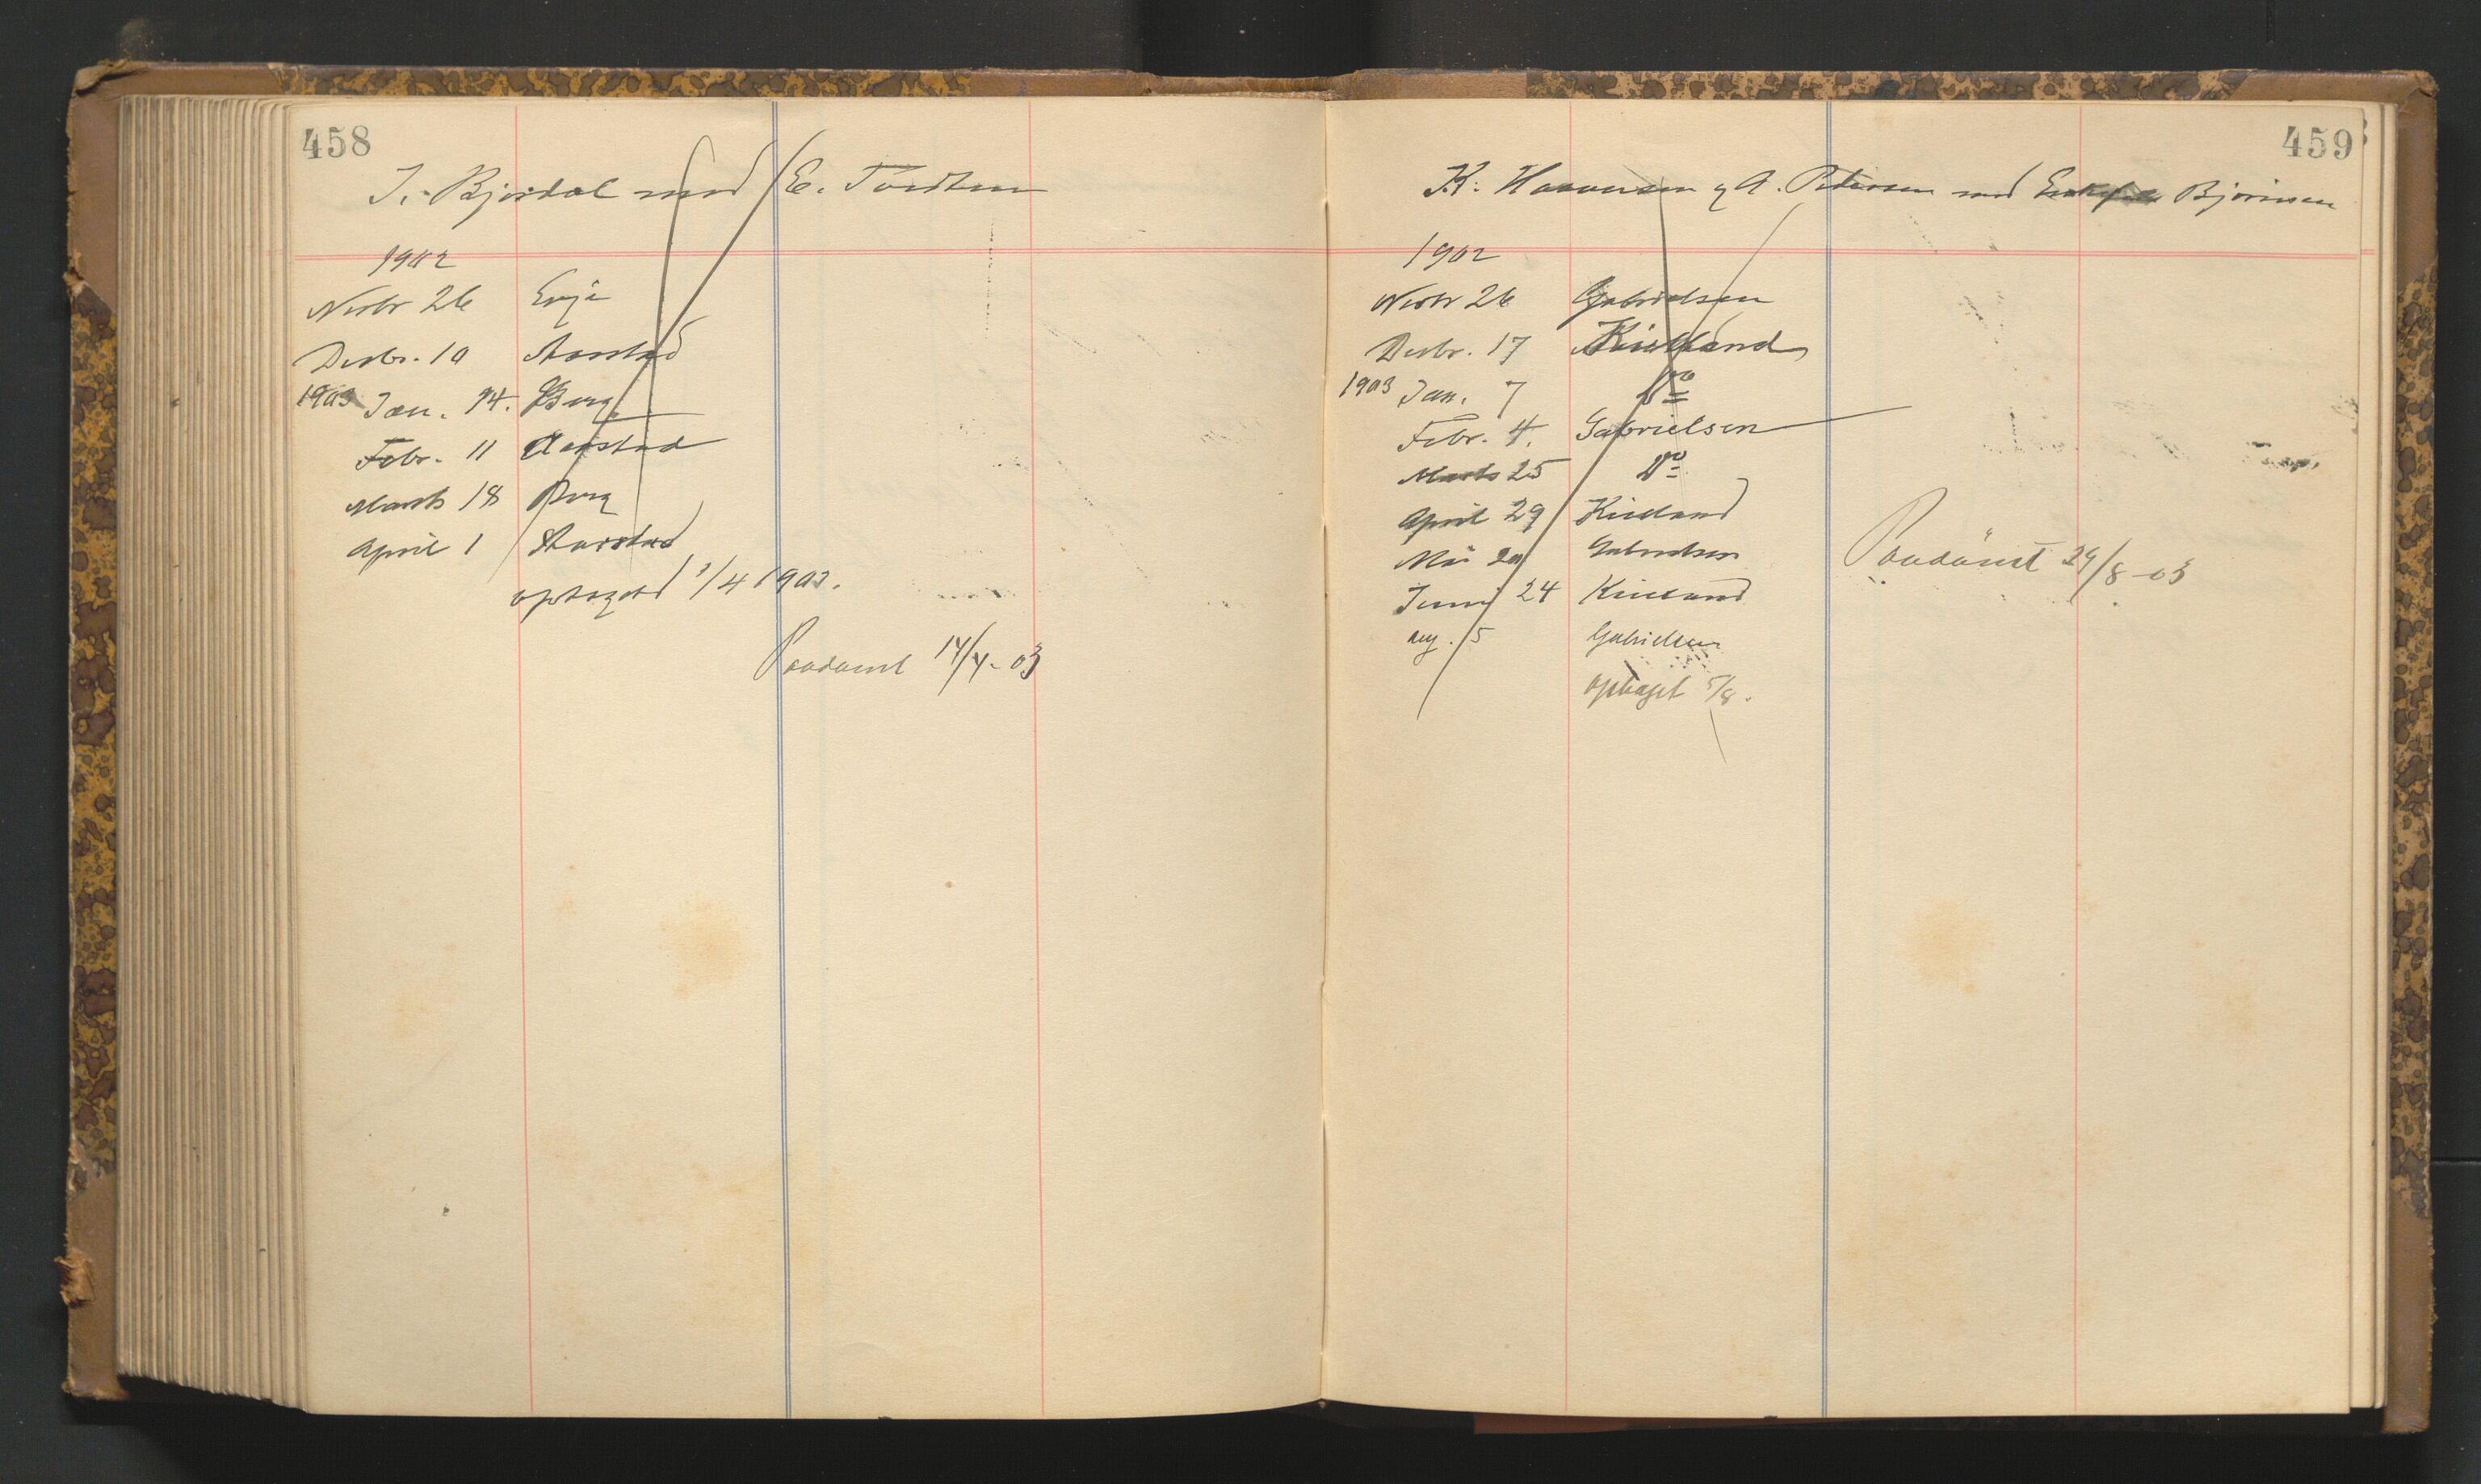 458
J. Bjordal mod E. Tordtsen
1902
Novbr 26 Erge
Desbr. 10 Aarstad
1903 Jan. 14. Berg
Febr. 11 Aarstad
Marts 18 Berg
April 1 Aarstad
optaget 1/4 1903.
Paadömt 14/4-03
459
K. Haavorsen og A. Petersen mod Bjørinsen
1902
Novbr 26 Gabrielsen
Desbr. 17 Kielland
1903 Jan. 7 Do
Febr. 4. Gabrielsen
Marts 25 Do
April 29 Kielland
Mai 20 Gabrielsen
Juni 24 Kielland
aug. 5 Gabrielsen
optaget 5/8.
Paadömt 29/8-03